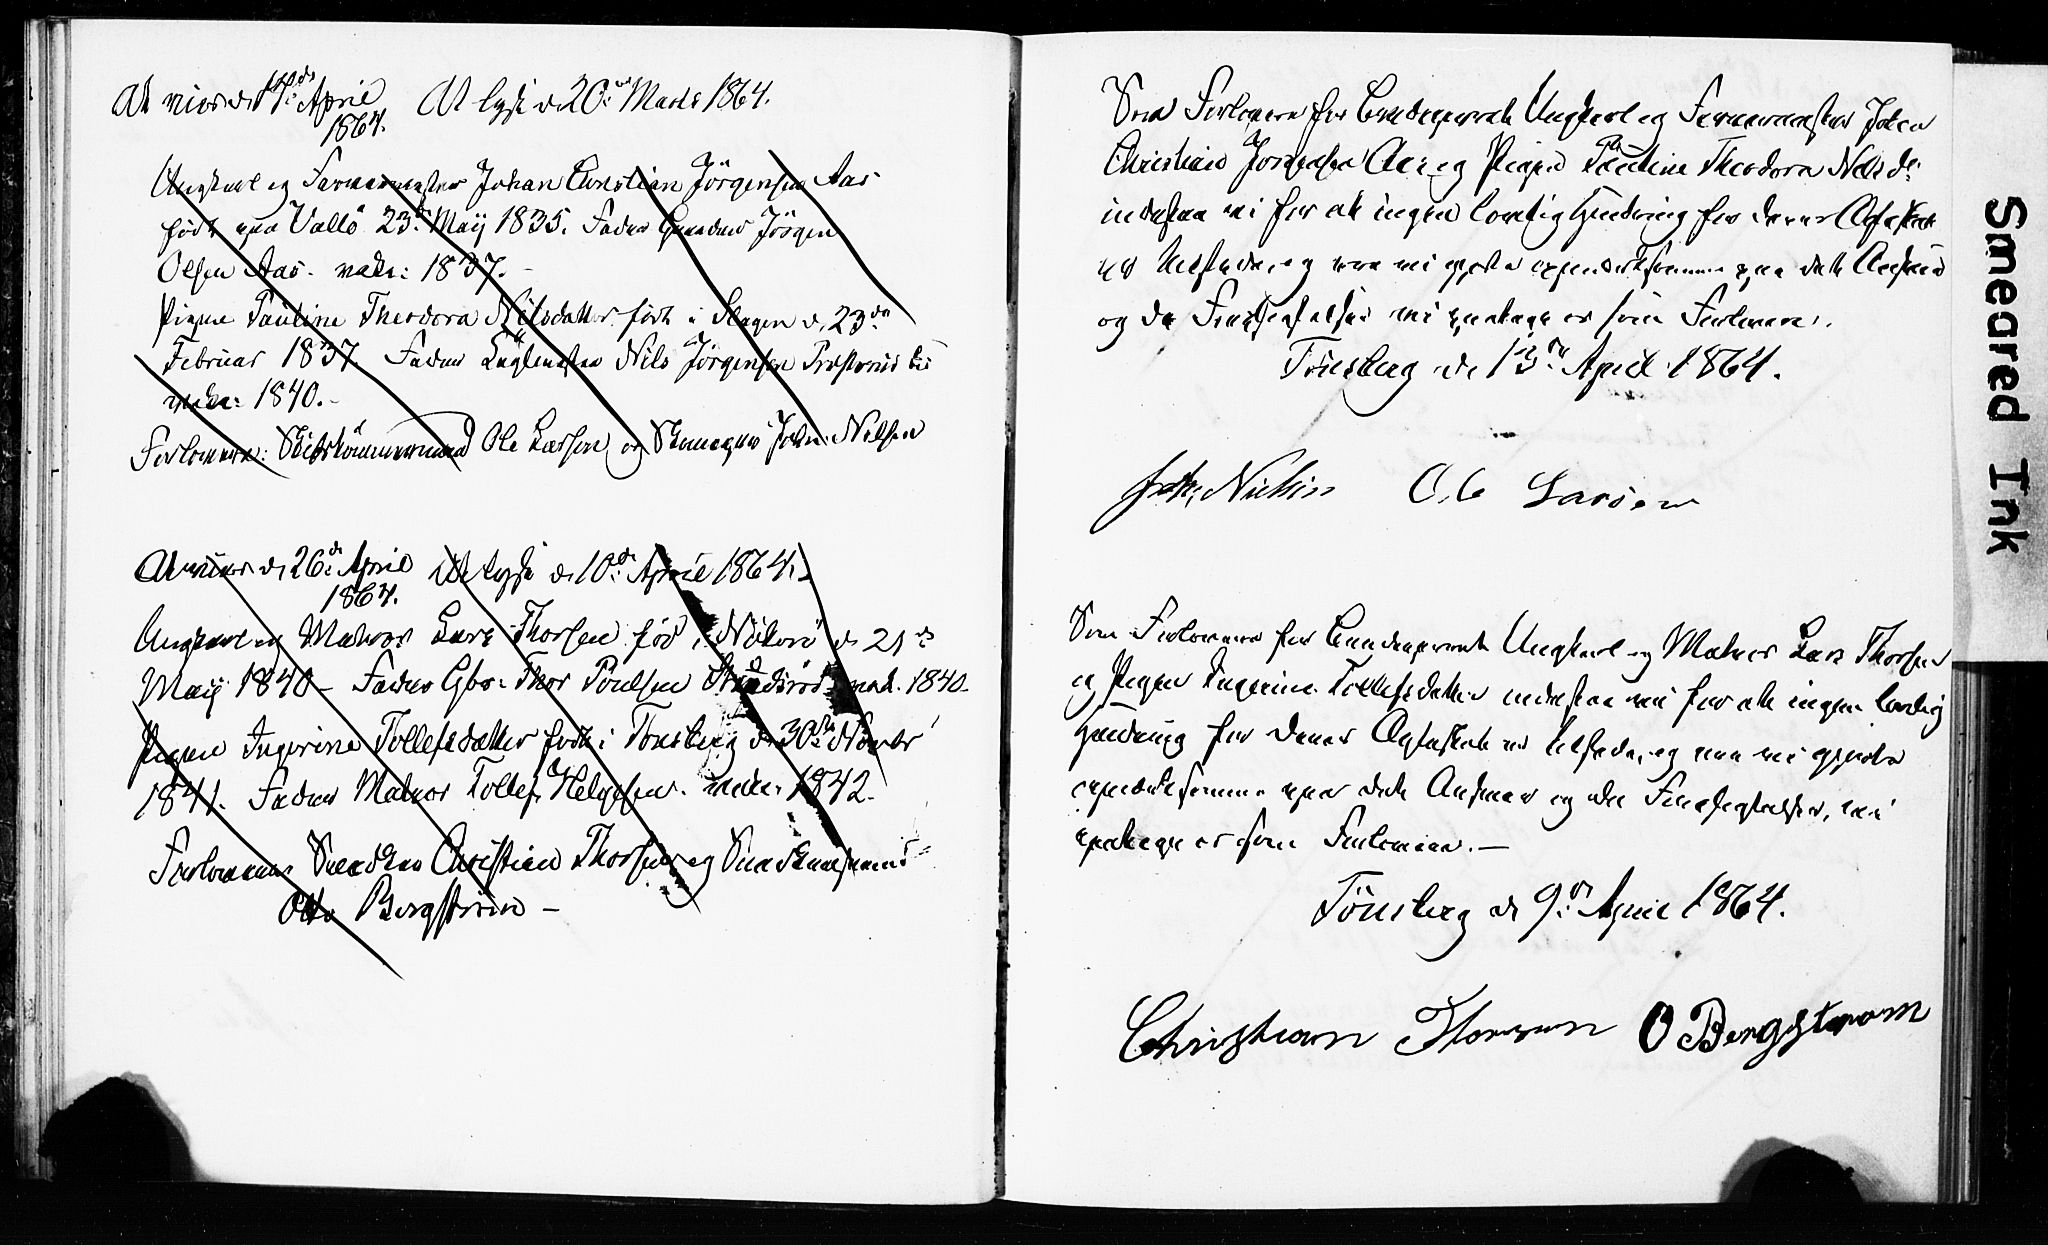 At vies d. 17de April At lyse d. 20de Marts 1864.
1864.
Ungkarl og Farvermester Johan Christian Jörgensen Aas
födt paa Vallö 23de Maij 1835. Fader Jörgen
Olsen Aas. vakc: 1837.
Pigen Pauline Theodora Nilsdatter födt i Slagen d. 23de
Februar 1837. Fader Nils Jörgensen
vakc: 1840.
Forlovere: Skibstömmermand Ole Larsen og John Nilsen
At vies d. 26de April At lyse d. 10de April 1864.
1864.
Ungkarl og Matros Lars Thorsen föd i Nöterö d. 21de
Maij 1840 Fader Thor Poulsen vak. 1840.
Pigen Ingerine Tollefsdatter födt i Tönsberg d. 30te Novbr
1841. Fader Matros Tollef Helgesen. vakc. 1842.
Forlovere Christian Thorsen og
Otto Bergström
Som Forlovere for Brudeparret Ungkarl og Farvermester Johan
Christian Jörgensen Aas og Pigen Pauline Theodora Nilsdr
indestaa vi for at ingen lovlig Hindring for deres Ægteskab
er tilstede, og vi opmærksomme paa det Ansvar
og de Forpligtelser vi paatage os som Forlovere.
Tönsberg d. 13de April 1864.
John Nielsen Ole Larsen
Som Forlovere for Brudeparret Ungkarl og Matros Lars Thorsen
og Pigen Ingerine Tollefsdatter indestaa vi for at ingen lovlig
Hindring for deres Ægteskab er tilstede, og vi gjorte
opmærksomme paa det Ansvar og de Forpligtelser, vi
paatage os som Forlovere.
Tönsberg d. 9de April 1864.
Christian Thorsen O Bergstrøm
Smeared Ink